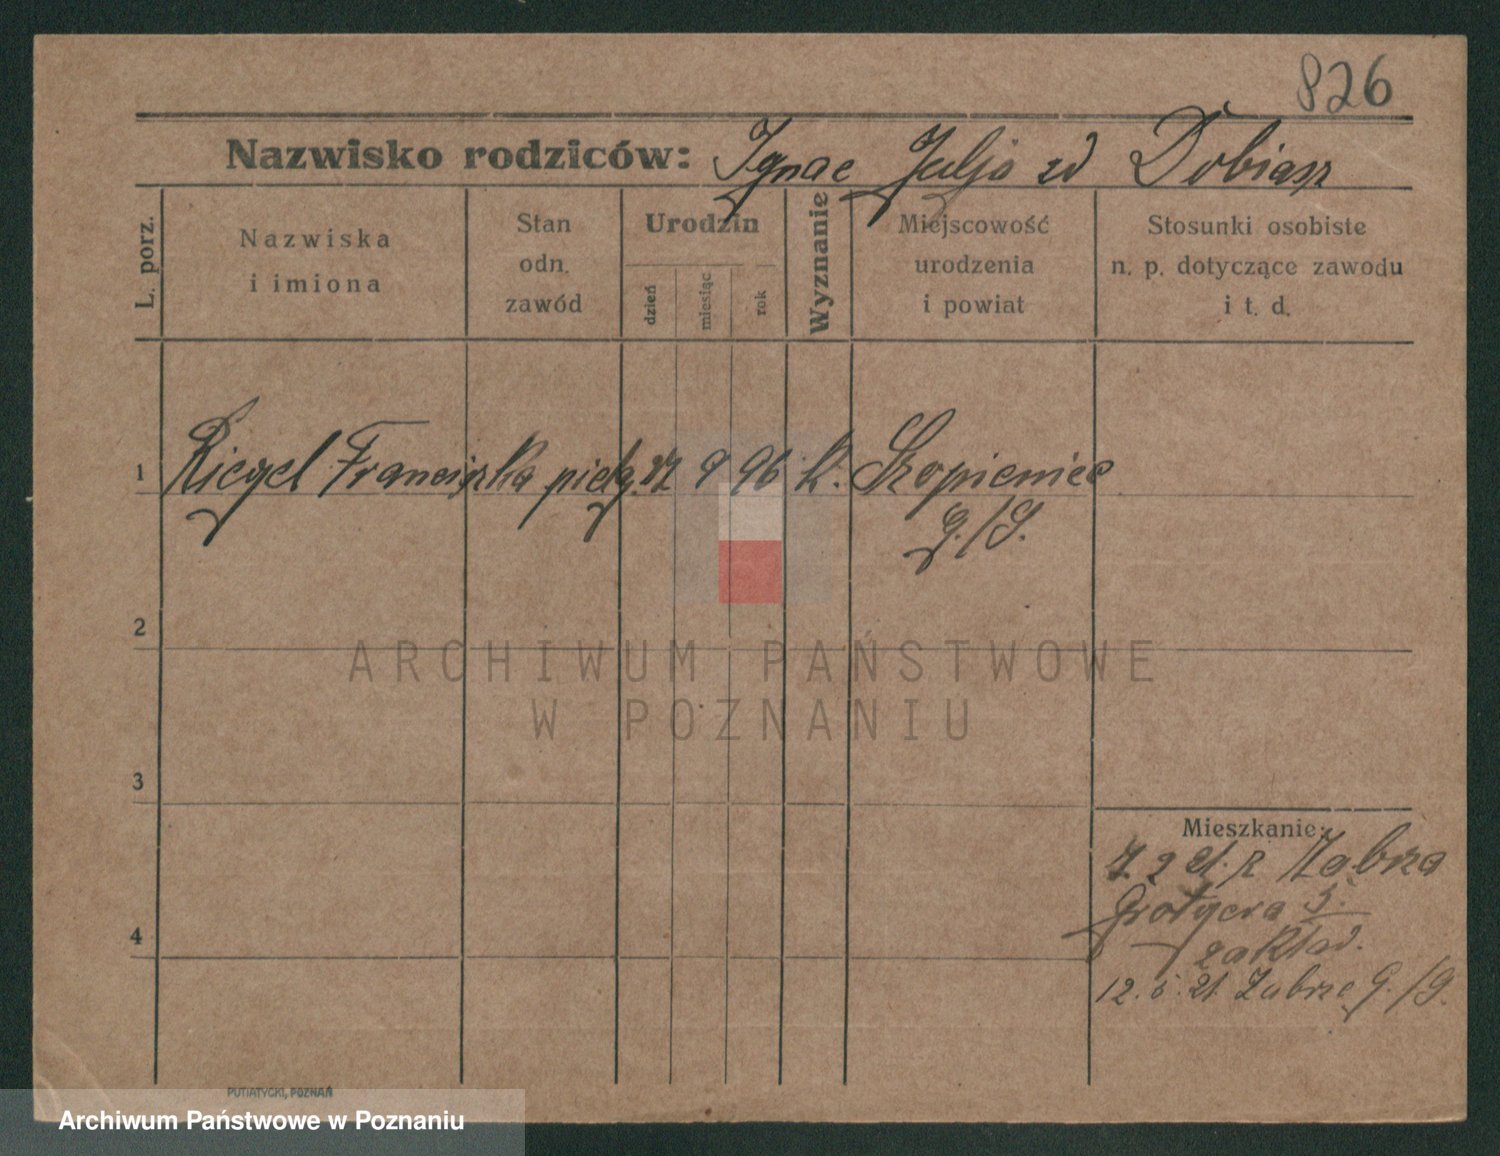 826
Nazwisko rodziców: Ignac Julja zd Dobiasz
L. porz.
Nazwiska
i imiona
Stan
odn.
zawód
Urodzin
dzień
miesiąc
rok
Wyznanie
Miejscowość
urodzenia
i powiat
Stosunki osobiste
n. p. dotyczące zawodu
i t. d.
1 Riegel Franciszka pielg. 9 96 k. Szopienice
G./S.
2
ARCHIWUM PAŃSTWOWE
W POZNANIU
3
Mieszkanie:
21. z Zabrza
5.
4
zakład.
12. 5. 21. Zabrze G./S.
PUTIATYCKI, POZNAŃ
Archiwum Państwowe w Poznaniu